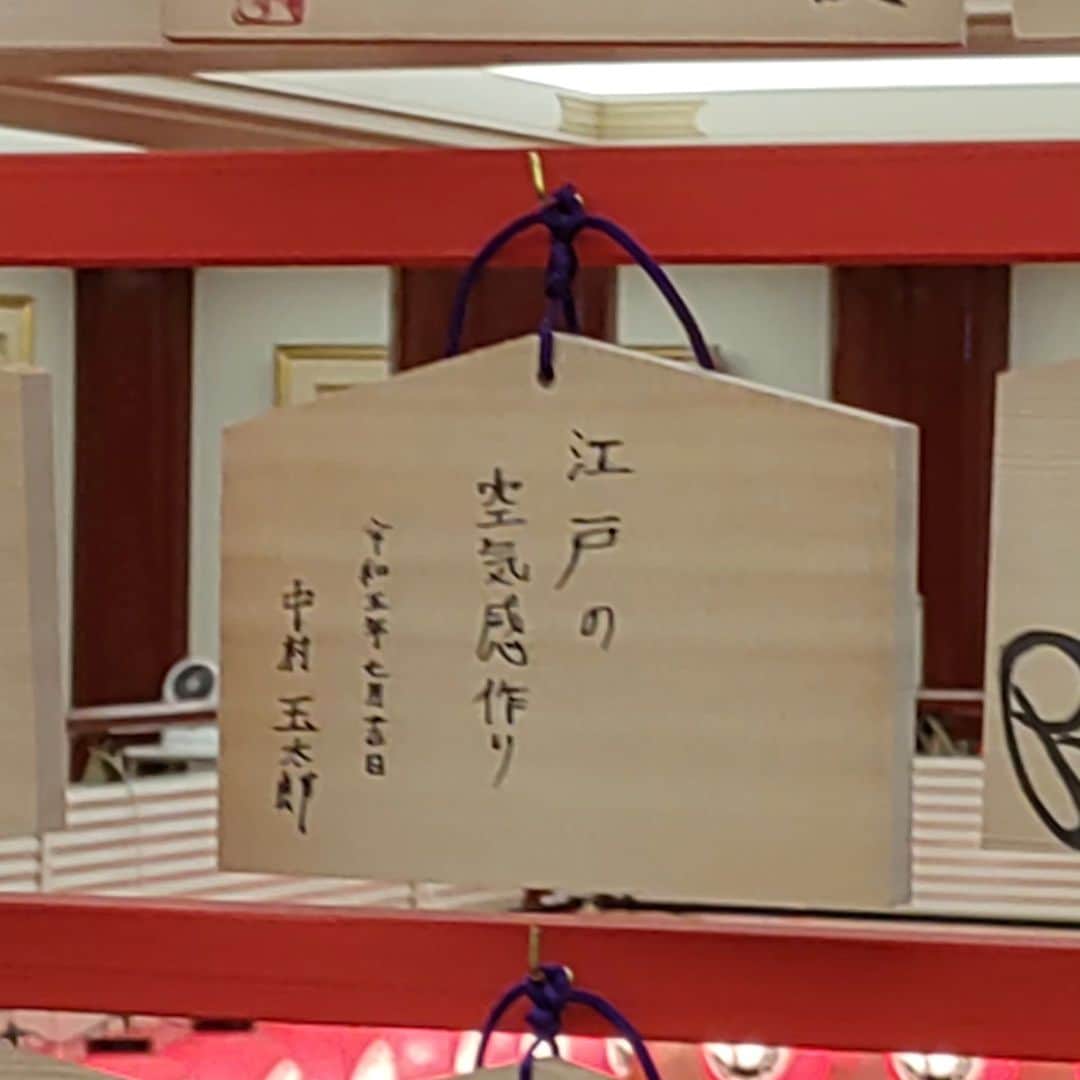 江戸の
空気感作り
令和五年七月吉日
中村玉太郎